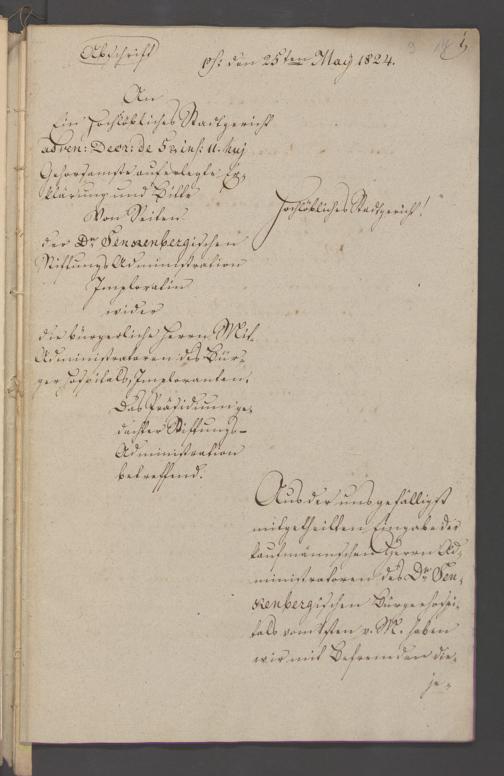 Abschrift
ps: den 25ten May 1824.
An
Ein Hochlöbliches Stadtgericht
ad ven: Decr: de 5 & ins: 11. Maj
Gehorsamste auferlegte Er-
klärung und Bitte
Von Seiten
der Dr. Senkenbergischen
Stiftungs Administration
Imploratin
wider
die bürgerliche Herrn Mit-
Administratoren des Bür-
ger Hospitals, Imploranten,
Das Präsidium ge-
dachter Stiftungs-
Administration
betreffend.
Hochlöbliches Stadtgericht!
Aus der uns gefälligst
mitgetheilten Eingabe der
kaufmännschen Herrn Ad-
ministratoren des Dr. Sen-
kenbergischen Bürgerhospi-
tals vom v. M. haben
wir mit Befremden die-
je-